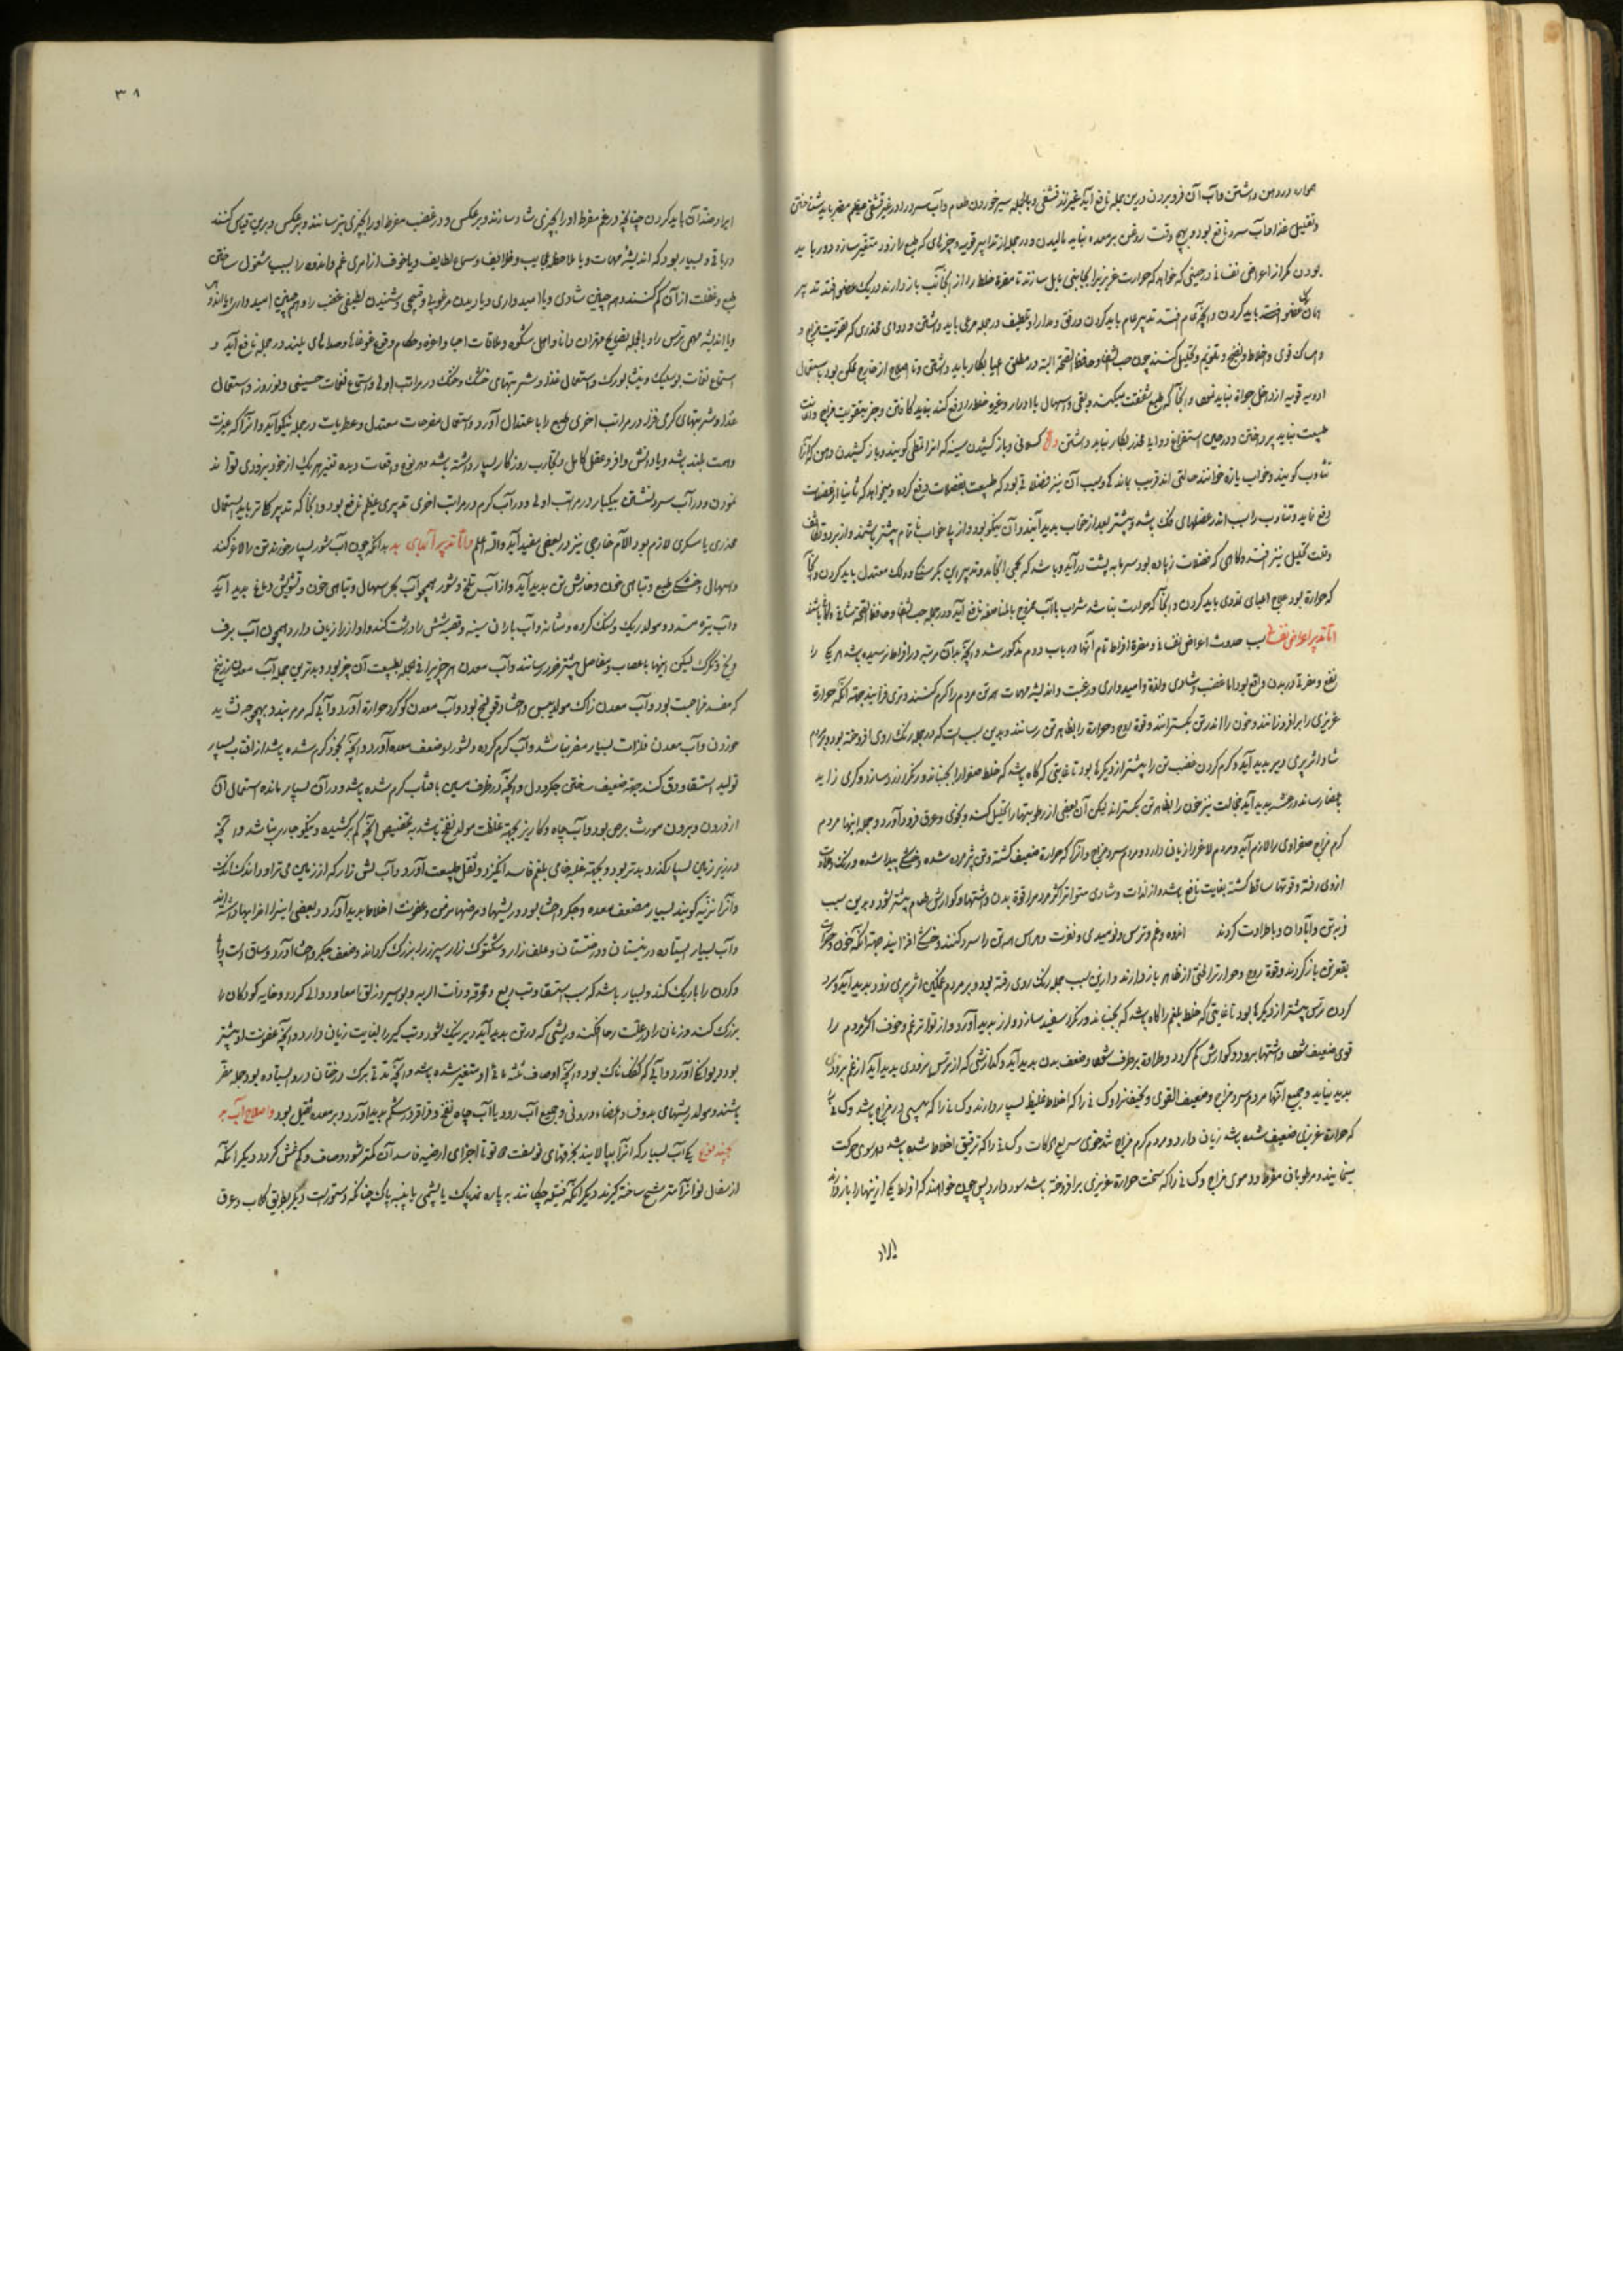 همواره در دهن داشتن و آب آن فرو بردن درین جمله نافع آید غیر از تشفی و بالجمله سیر خوردن طعام و آب سرد را در غیر تشفی عظیم مضر باید شناختن
و تقلیل غذا و آب سرد نافع بود و بهیچ وقت روغن بر معده نباید مالیدن و در جمله از تدابیر قویه و چیزهای که طبع را زود متغیر سازد دور باید
بودن مگر از اعراض نفسانی در حینی که خواهد که حرارت غریزی را بجانبی مایل سازند تا مضرة خلط را از آنجانب باز دارند در یک عضو افتد تدبیر
همان عضو باید کردن و آنچه عام افتد تدبیر عام باید کردن و رفق و مدارا و تلطیف در جمله مرعی باید داشتن و دوای مخدری که تقویت مزاج و
امساک قوی و اخلاط و نضج و تقویم و تحلیل کنند چون حب الشفا و حافظ الصحه البته در مطلق اعیا بکار باید داشتن و تا اصلاح از خارج ممکن بود باستعمال
ادویه قویه از داخل جرأة نباید نمود و آنجا که طبع شفقت میکند و بقی و اسهال یا ادرار و غیره خلط را دفع کند بدید کافتن و جز بتقویت مزاج و اعانت
طبیعت نباید پرداختن و در حین استفراغ دوای مخدر بکار نباید داشتن
تثاوب گویند و خواب یازه خوانند حالتی اند قریب باعیا و سبب آن نیز فضلاتی بود که طبیعت بعضلات دفع کرده و میخواهد که ثانیا از عضلات
دفع نماید و تثاوب را سبب اندر عضلهای فک باشد و بیشتر بعد از خواب پدید آیند و آن نیکو بود و از پا خواب ناتمام بیشتر باشد و از برد و تکاثف
وقت تحلیل نیز افتد و گاهی که فضلات زیاده بود سرما به پشت درآید و باشد که تب انجامد و تدبیر این بگرسنگی و دلک معتدل باید کردن و آنجا
که حرارة بود علاج اعیای تمددی باید کردن و آنجا که حرارت نباشد شراب با آب ممزوج بالمناصفه نافع آید و در جمله حب الشفا و حافظ الصحه
اما تدبیر اعراض نفسانی سبب حدوث اعراض نفسانی و مضرة افراط تام آنها در باب دوم مذکور شد و آنچه بدان مرتبه در افراط نرسیده باشد هر یک را
نفع و مضرتی در بدن واقع بود اما غضب و شادی و لذة و امیدواری و رغبت و اندیشه مهمات همه تن مردم را گرم کنند و تری فزایند جهة آنکه حرارة
غریزی را برافروزانند و خون را اندر تن بگسترانند و قوة روح و حرارة را بظاهر تن رسانند و بدین سبب است که در جمله رنگ روی افروخته بود و بر مردم
شاد اثر پری دیر پدید آید و گرم کردن غضب تن را بیشتر از دیگرها بود تا غایتی که گاه باشد که خلط صفرا را بجنباند و رنگ زرد سازد و گری زاید
باعضا رساند و رعشه پدید آید و خجالت نیز خون را بظاهر تن بگستراند لیکن آن بعضی از رطوبتها را تحلیل کند و بخوی و عرق فرود آورد و جمله اینها مردم
گرم مزاج صفراوی را لازم آید و مردم لاغر را زیان دارد و مردم سرد مزاج و آنرا که حرارة ضعیف گشته و تن پژمرده شده و خشکی پیدا شده و رنگ و طراوت
از وی رفته و قوتها ساقط گشته بغایت نافع باشد و از لذات و شادی متواتر اکثر مردم را قوة بدن و اشتها و گوارش طعام بیشتر شود و بدین سبب
فربه تن و آبادان و با طراوت گردند اندوه و غم و ترس و نومیدی و نفرت و هراس همه تن را سرد کنند و خشکی افزایند جهة آنکه خون و حرارت
بقعر تن باز گردند و قوة روح و حرارت را لختی از ظاهر باز دارند و ازین سبب جمله رنگ روی رفته بود و بر مردم غمگین اثر پری زود پدید آید و سرد
کردن ترس بیشتر از دیگرها بود تا غایتی که خلط بلغم را گاه باشد که بجنباند و رنگ را سفید سازد و لرز پدید آورد و از تواتر غم و خوف اکثر مردم را
قوی ضعیف شود و اشتها برود و گوارش کم گردد و طراوة برطرف شود و ضعف بدن پدید آید و گدازشی که از ترس بزودی پدید آید از غم بزودی
پدید نیاید و جمیع آنها مردم سرد مزاج و ضعیف القوی و نحیف را و کسانی را که اخلاط غلیظ بسیار دارند و کسانی را که یبسی در مزاج باشد و کسانی را
که حرارة غریزی ضعیف شده باشد زیان دارد و مردم گرم مزاج تندخوی سریع الحرکات و کسانی را که ترقیق اخلاط شده باشد و بسوی حرکت
مینمایند و مرطوبان مفرط و دموی مزاج و کسانی را که سخت حرارة غریزی برافروخته باشد سود دارد پس چون خواهند که افراط یکی ازینها را باز دارند
ایراد
۳۸
ایراد ضد آن باید کردن چنانچه در غم مفرط او را بچیزی شاد سازند و برعکس و در غضب مفرط او را بچیزی بترسانند و برعکس و برین قیاس کنند
در باقی و بسیار بود که اندیشه مهمات و یا ملاحظه عجایب و ظرایف و سماع لطایف و یا خوف از امری غم و اندوه را بسبب مشغول ساختن
طبع و غفلت از آن کم کنند و همچنین شادی و یا امیدواری و یا دیدن مرغوبی و قبیحی و شنیدن لطیفه غضب را و همچنین امیدواری
و یا اندیشه مهمی ترس را و بالجمله نصایح مهتران دانا و اهل شکوه و ملاقات احبا و اعزه و حکام و وقوع غوغاها و صداهای بلند در جمله نافع آید و
استماع نغمات بوسلیک و نیشابورک و استعمال غذا و شربتهای خنک در مراتب اولی و استماع نغمات حسینی و نوروز و استعمال
غذا و شربتهای گرمی فزا در مراتب اخری طبع را باعتدال آورد و استعمال مفرحات معتدل و عطریات در جمله نیکو آید و آنرا که غیرت
و همت بلند باشد و یا دانش وافر و عقل کامل و تجارب روزگار بسیار داشته باشد و هر نوع واقعات دیده تغیر هر یک از خود بزودی تواند
نمودن و در آب سرد نشستن بیکبار در مرتبه اولی و در آب گرم در مراتب اخری تدبیری عظیم نافع بود و آنجا که تدبیر کلی‌تر باید استعمال
مخدری یا مسکری لازم بود و آلام خارجی نیز در بعضی مفید آید والله اعلم و اما تدبیر آبهای بد بدانکه چون آب شور بسیار خورند تن را لاغر کند
و اسهال و خشکی طبع و تباهی خون و خارش تن پدید آید و از آب تلخ و شور همچو آب بحر اسهال و تباهی خون و تشویش دماغ پدید آید
و آب تیره سدد و مولد ریگ و سنگ گرده و مثانه و آب باران سینه و قصبه شش را درشت کند و آواز را زیان دارد و همچون آب برف
و یخ و تگرگ لیکن اینها باعصاب و مفاصل بیشتر ضرر رسانند و آب معدن هر چیزی را فی الجمله طبیعت آن چیز بود و بدترین جمله آب معدن زرنیخ
که مفسد مزاجیت بود و آب معدن زاک مولد یبس و احشا و قولنج بود و آب معدن گوگرد حرارة آورد و آبی که مرمر بندد بهیچوجه نشاید
خوردن و آب معدن فلزات بسیار مضر نباشد و آب گرم کرده و لشور ضعف معده آورد و آنچه بخود گرم شده باشد از آفتاب بسیار
تولید استسقا و دق کند جهة ضعیف ساختن جگر و دل و آنچه در ظرف مسین بآفتاب گرم شده باشد و در آن بسیار مانده استعمال آن
از درون و برون مورث برص بود و آب چاه و کاریز بجهة غلظت مولد نفخ باشد بتخصیص آنچه کم برکشیده و نیکو جاری نباشد و آنچه
در زیر زمین بسیار گذرد بدتر بود و بجهة غلبه خامی بلغم فاسد انگیزد و ثقل طبیعت آورد و آب لش‌زار که از زمین می‌تراود اندک اندک
و آنرا نزیه گویند بسیار مضعف معده و جگر و احشا بود و ریشها و مرضهای مزمن و عفونت اخلاط پدید آورد و بعضی اینرا خرابها دانسته‌اند
و آب بسیار ایستاده در نیستان و درختستان و علفزار و شلتوک‌زار سپرز را بزرگ گرداند و ضعف جگر و احشا آورد و ساق دست و پا
و گردن را باریک کند و بسیار باشد که سبب استسقا و تب ربع و محرقه و ذات الریه و بواسیر و زلق امعا و دوالی گردد و خایه کودکان را
بزرگ کند و زنان را در علت رجا افکند و ریشی که در تن پدید آید دیر نیک شود و تب گیر را بغایت زیان دارد و آنچه عفونت او بیشتر
بود دیوانگی آورد و آبی که کفک‌ناک بود و آنچه اوصاف ثلثه مائی او متغیر شده باشد و آنچه مدتی برگ درختان درو ایستاده بود جمله مضر
باشند و مولد ریشهای بدوف و اعضاء درونی و جمیع آب رود با آب چاه نفخ و قراقر در شکم پدید آورد و بر معده ثقیل بود و اصلاح آب بد
بچند نوع یکی آب بسیار که آنرا بپالایند بخرقهای نوبافت تا اجزای ارضیه فاسد آن کمتر شود و صاف و کم غش گردد دیگر آنکه
از سفال نو آنرا مترشح ساخته گیرند دیگر آنکه فتیله چکانند به پاره نمد پاک یا پشمی یا پنبه پاک چنانکه دستورست دیگر بطریق گلاب و عرق